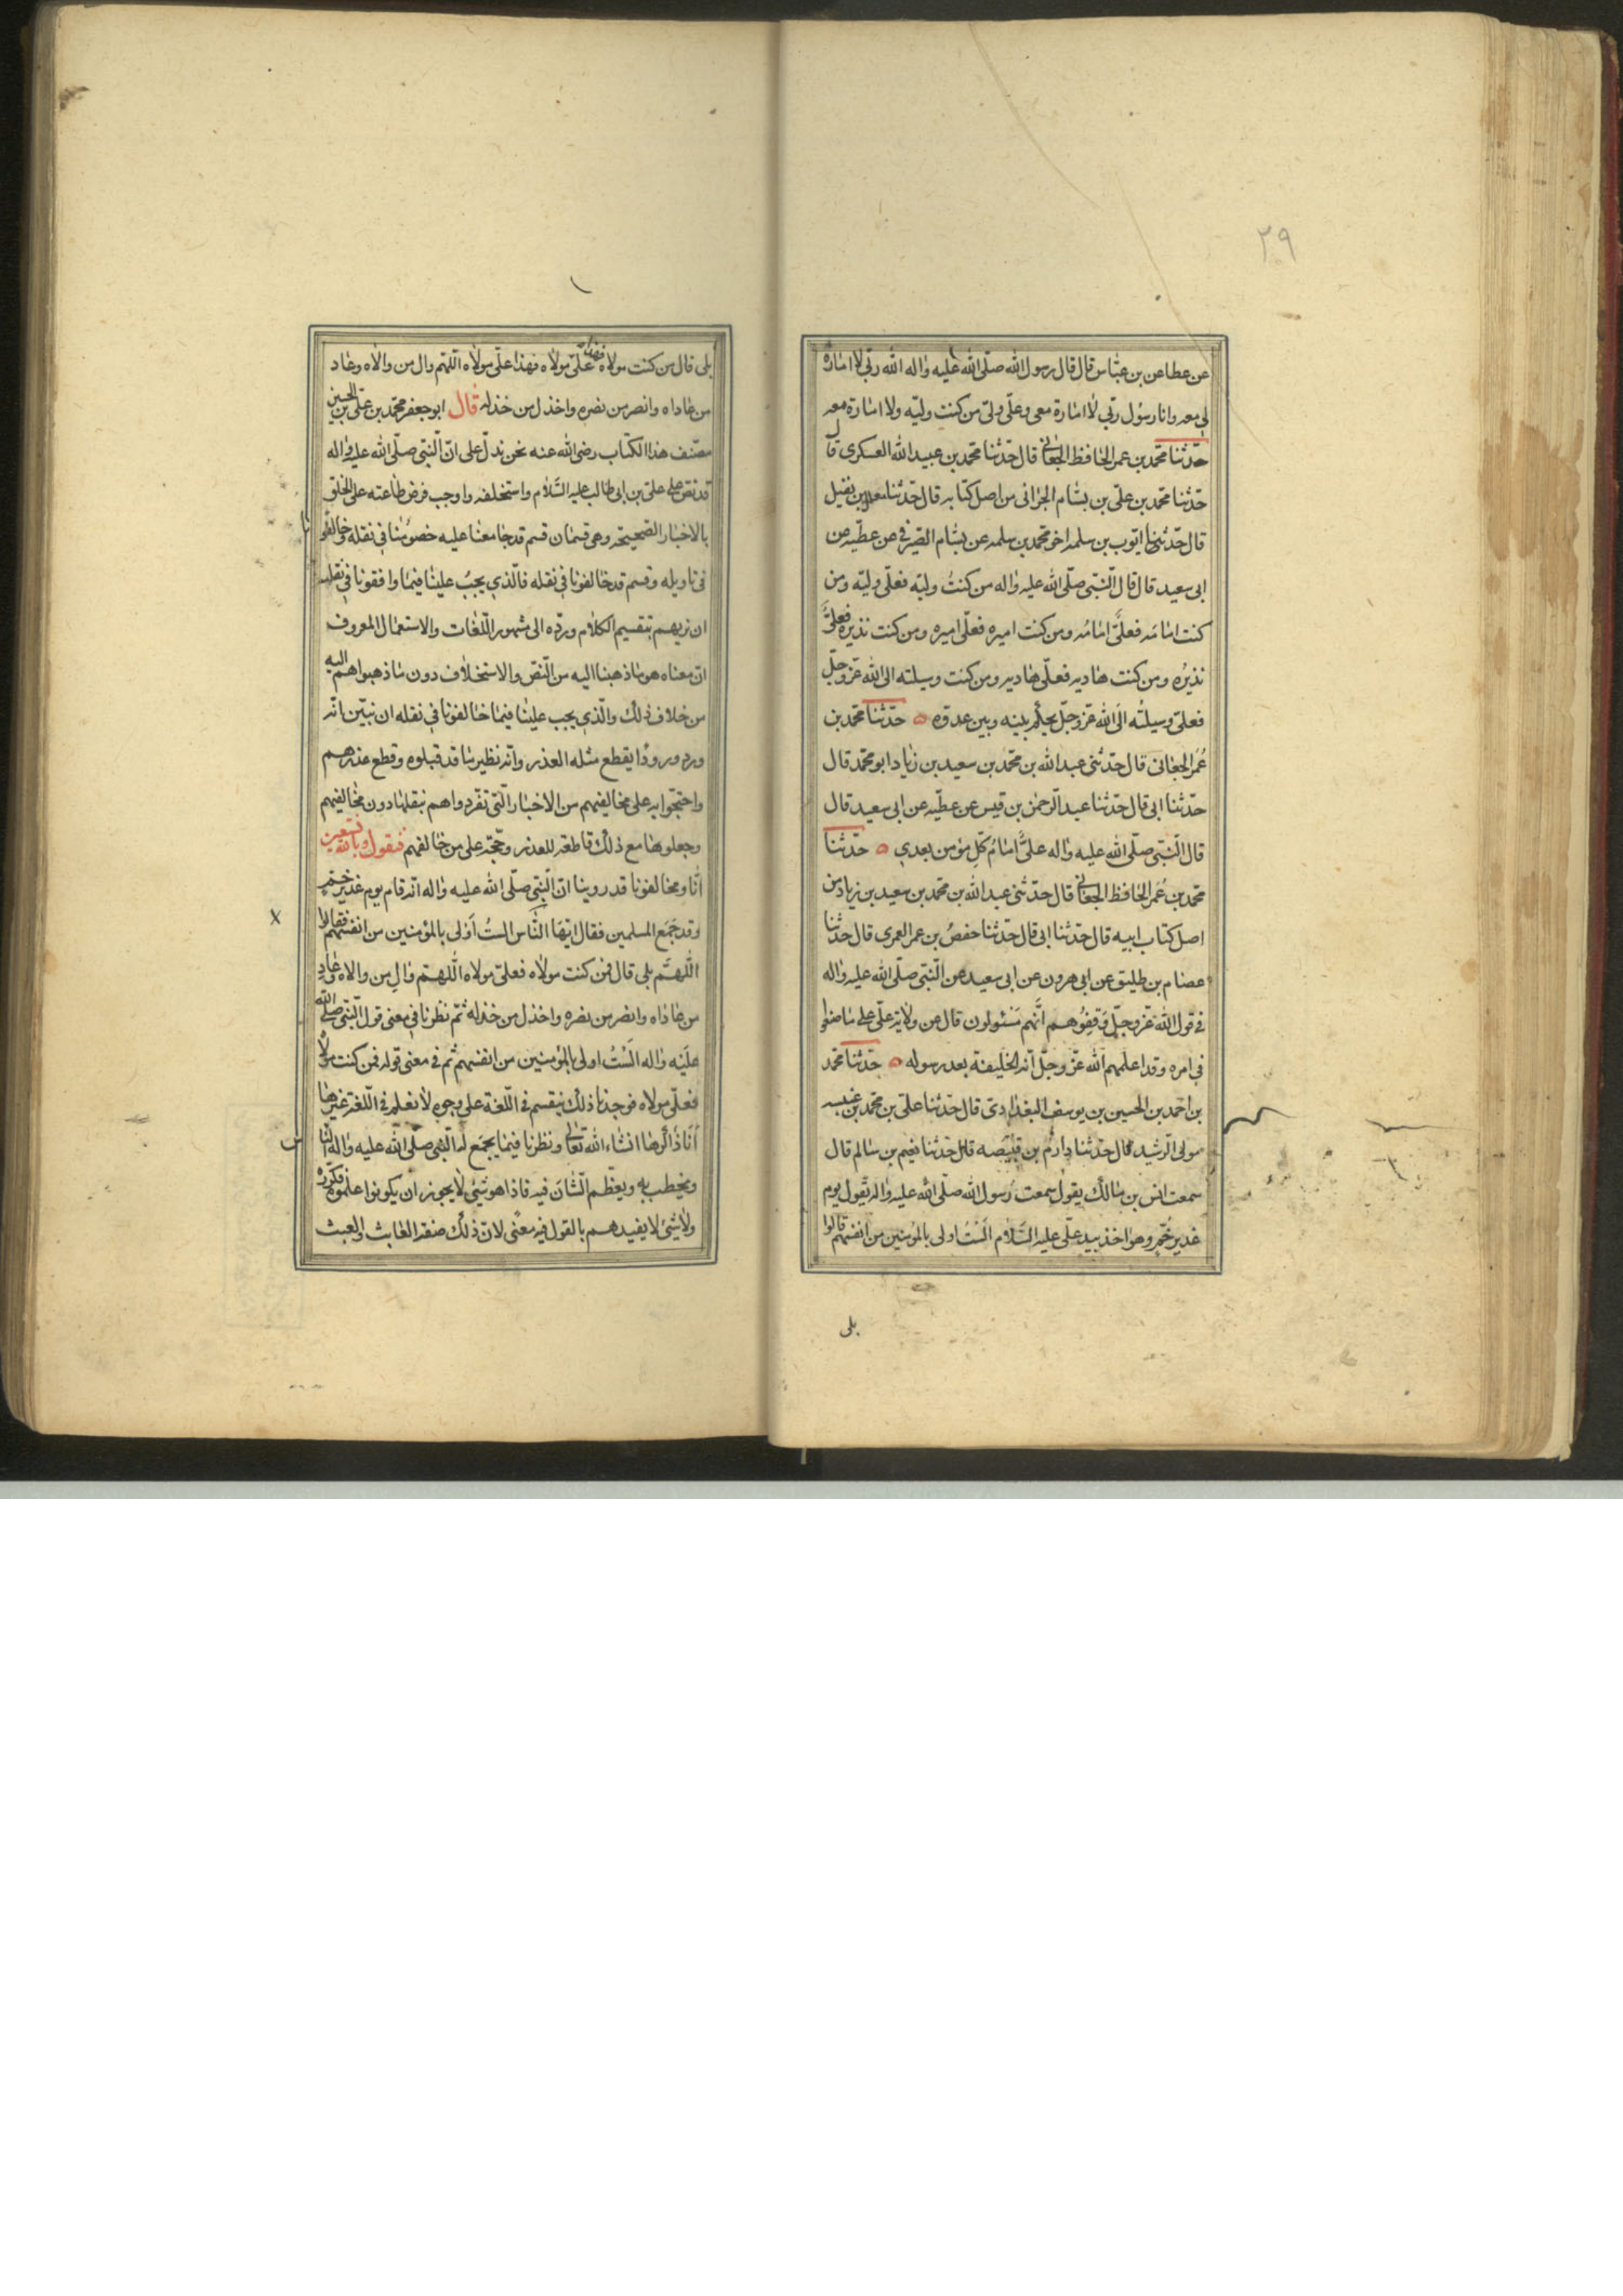 ٢٩
عن عطا عن بن عباس قال قال رسول الله صلّى الله عليه واله الله ربّي لا امارة
لي معه وانا رسول ربّي لا امارة معي وعلّي وليّ من كنت وليّه ولا امارة معه
حدّثنا محمّد بن عمر الحافظ الجعاني قال حدّثنا محمد بن عبيد الله العسكري قال
حدّثنا محمّد بن علي بن بسّام الحرّاني من اصل كتابه قال حدّثنا معلل بن نفيل
قال حدّثنا ايّوب بن سلمه اخو محمّد بن سلمه عن بسّام الصّيرفي عن عطيّه عن
ابي سعيد قال قال النّبيّ صلّى الله عليه واله من كنتُ وليّه فعلّي وليّه ومن
كنت امامَه فعليٌّ امامُه ومن كنت اميره فعلّي اميره ومن كنت نذيره فعليٌّ
نذيرُه ومن كنت هاديه فعلّي هاديه ومن كنت وسيلته الى الله عزّ وجلّ
فعلي وسيلتُه الى الله عزّ وجلّ يحكم بينه وبين عدوّه ه حدّثنا محمّد بن
عُمَر الجعاني قال حدّثني عبد الله بن محمّد بن سعيد بن زياد ابو محمّد قال
حدّثنا ابي قال حدّثنا عبد الرحمن بن قيس عن عطيّه عن ابي سعيد قال
قال النّبيّ صلّى الله عليه واله عليٌّ امامُ كلّ مؤمن بعدي ه حدّثنا
محمّد بن عُمَر الحافظ الجعاني قال حدّثني عبد الله بن محمّد بن سعيد بن زياد من
اصل كتاب ابيه قال حدّثنا ابي قال حدّثنا حفصُ بن عمر العمري قال حدثنا
عصام بن طليق عن ابي هرون عن ابي سعيد عن النّبيّ صلّى الله عليه واله
في قول الله عزّ وجلّ وَقِفُوُهم انَّهم مَسْئولون قال عن ولاية علّي على ما صنعوا
في امره وقد اعلمهم الله عزّ وجلّ انّه الخليفة بعد رسوله ه حدّثنا محمّد
بن احمد بن الحسين بن يوسف البغدادي قال حدّثنا علي بن محمّد بن عنبسه
مولى الرّشيد قال حدّثنا دارمُ بن قبيصه قال حدّثنا نعيم بن سالم قال
سمعت انس بن مالك يقول سمعت رسول الله صلّى الله عليه واله يقول يوم
غدير خُمّ وهو اخذ بيد علّي عليه السَّلام الَسْتُ اولى بالمؤمنين من انفسهم قالوا
بلى
بلى قال من كنت مولاه فهذا علّي مولاه فهذا علّي مولاه اللّهم وال من والاه وعاد
من عاداه وانصر من نصره واخذل من خذله قال ابو جعفر محمّد بن علي بن الحسين
مصنّف هذا الكتاب رضي الله عنه نحن ندلّ على انّ النّبيّ صلّى الله عليه واله
قد نصّ على عليّ بن ابي طالب عليه السَّلام واستخلفه واوجب فرض طاعته على الخلق
بالاخبار الصّحيحة وهي قسمان قسم قد جامعنا عليه خصومُنا في نقله وخالفونا
في تاويله وقسم قد خالفونا في نقله فالّذي يجبُ علينا فيما وافقونا في نقله
ان نريهم بتقسيم الكلام وردّه الى مشهور اللّغات والاستعمال المعروف
انّ معناه هو ما ذهبنا اليه من النّصّ والاستخلاف دون ما ذهبوا هم اليه
من خلاف ذلك والّذي يجب علينا فيما خالفونا في نقله ان نبيّن انّه
ورد ورودًا يقطع مثله العذر وانّه نظير ما قد قبلوه وقطع عذرهم
واحتجّوا به على مخالفيهم من الاخبار الّتي تفرّدوا هم بنقلها دون مخالفيهم
وجعلوها مع ذلك قاطعة للعذر وحجّة على من خالفهم فنقول وبالله نستعين
انّا ومخالفونا قد روينا انّ النّبيّ صلّى الله عليه واله انّه قام يوم غدير خمّ
وقد جَمَع المسلمين فقال ايّها النّاس الستُ اَوْلى بالمؤمنين من انفسهم فقالوا
اللّهمّ بلى قال فمن كنت مولاه فعلّي مولاه اللّهمّ والِ من والاه وعادِ
من عاداه وانصر من نصره واخذل من خذله ثمّ نظرنا في معنى قول النّبيّ صلّى الله
عليَه واله الَسْتُ اولى بالمؤمنين من انفسهم ثم في معنى قوله فمن كنت مولاه
فعلّي مولاه فوجدنا ذلك ينقسم في اللّغة على وجوه لا نعلم في اللّغة غيرها
اَنَا ذاكرها انشاء الله تعالى ونظرنا فيما يجمَع له النّبي صلّى الله عليه واله النّاس
ويخطب به ويعظّم الشّانَ فيه فاذا هو شيئ لا يجوز ان يكونوا علموه فكرّره
ولا شيئ لا يفيدهم بالقول فيه معنًى لانّ ذلك صفة العابث والعبث